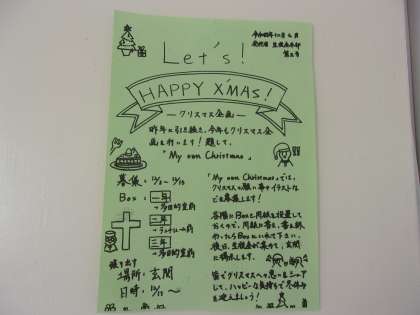 令和四年十二月七日
発行者 生徒会本部
第三号
Let's!
HAPPY X'MAS!
ークリスマス企画ー
昨年に引き続き、今年もクリスマス企
画を行います!題して、
「My own Christmas」
募集:12/2~12/13
Box:一年
→多目的室前
二年
三年
→多目的室前
張り出す
場所:玄関
日時:12/17~
「My own Christmas」では、
クリスマスの願い事やイラストな
どを募集します!
各階にBoxと用紙を設置して
おくので、用紙に書き、書き終
わったらBoxに入れて下さい。
後日、生徒会が集めて、玄関
に掲示します。
皆でクリスマスへの思いをシェア
して、ハッピーな気持ちで冬休み
を迎えましょう!